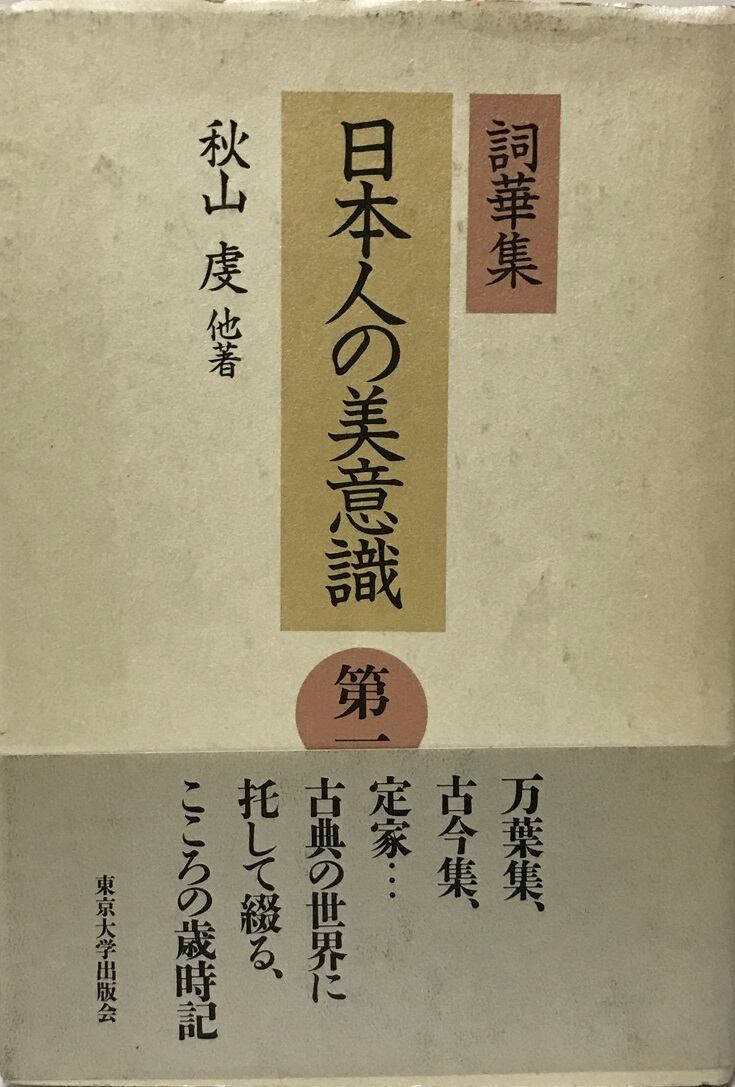 詞華集
日本人の美意識
第一
秋山 虔 他著
万葉集、
古今集、
定家…
古典の世界に
托して綴る、
こころの歳時記
東京大学出版会